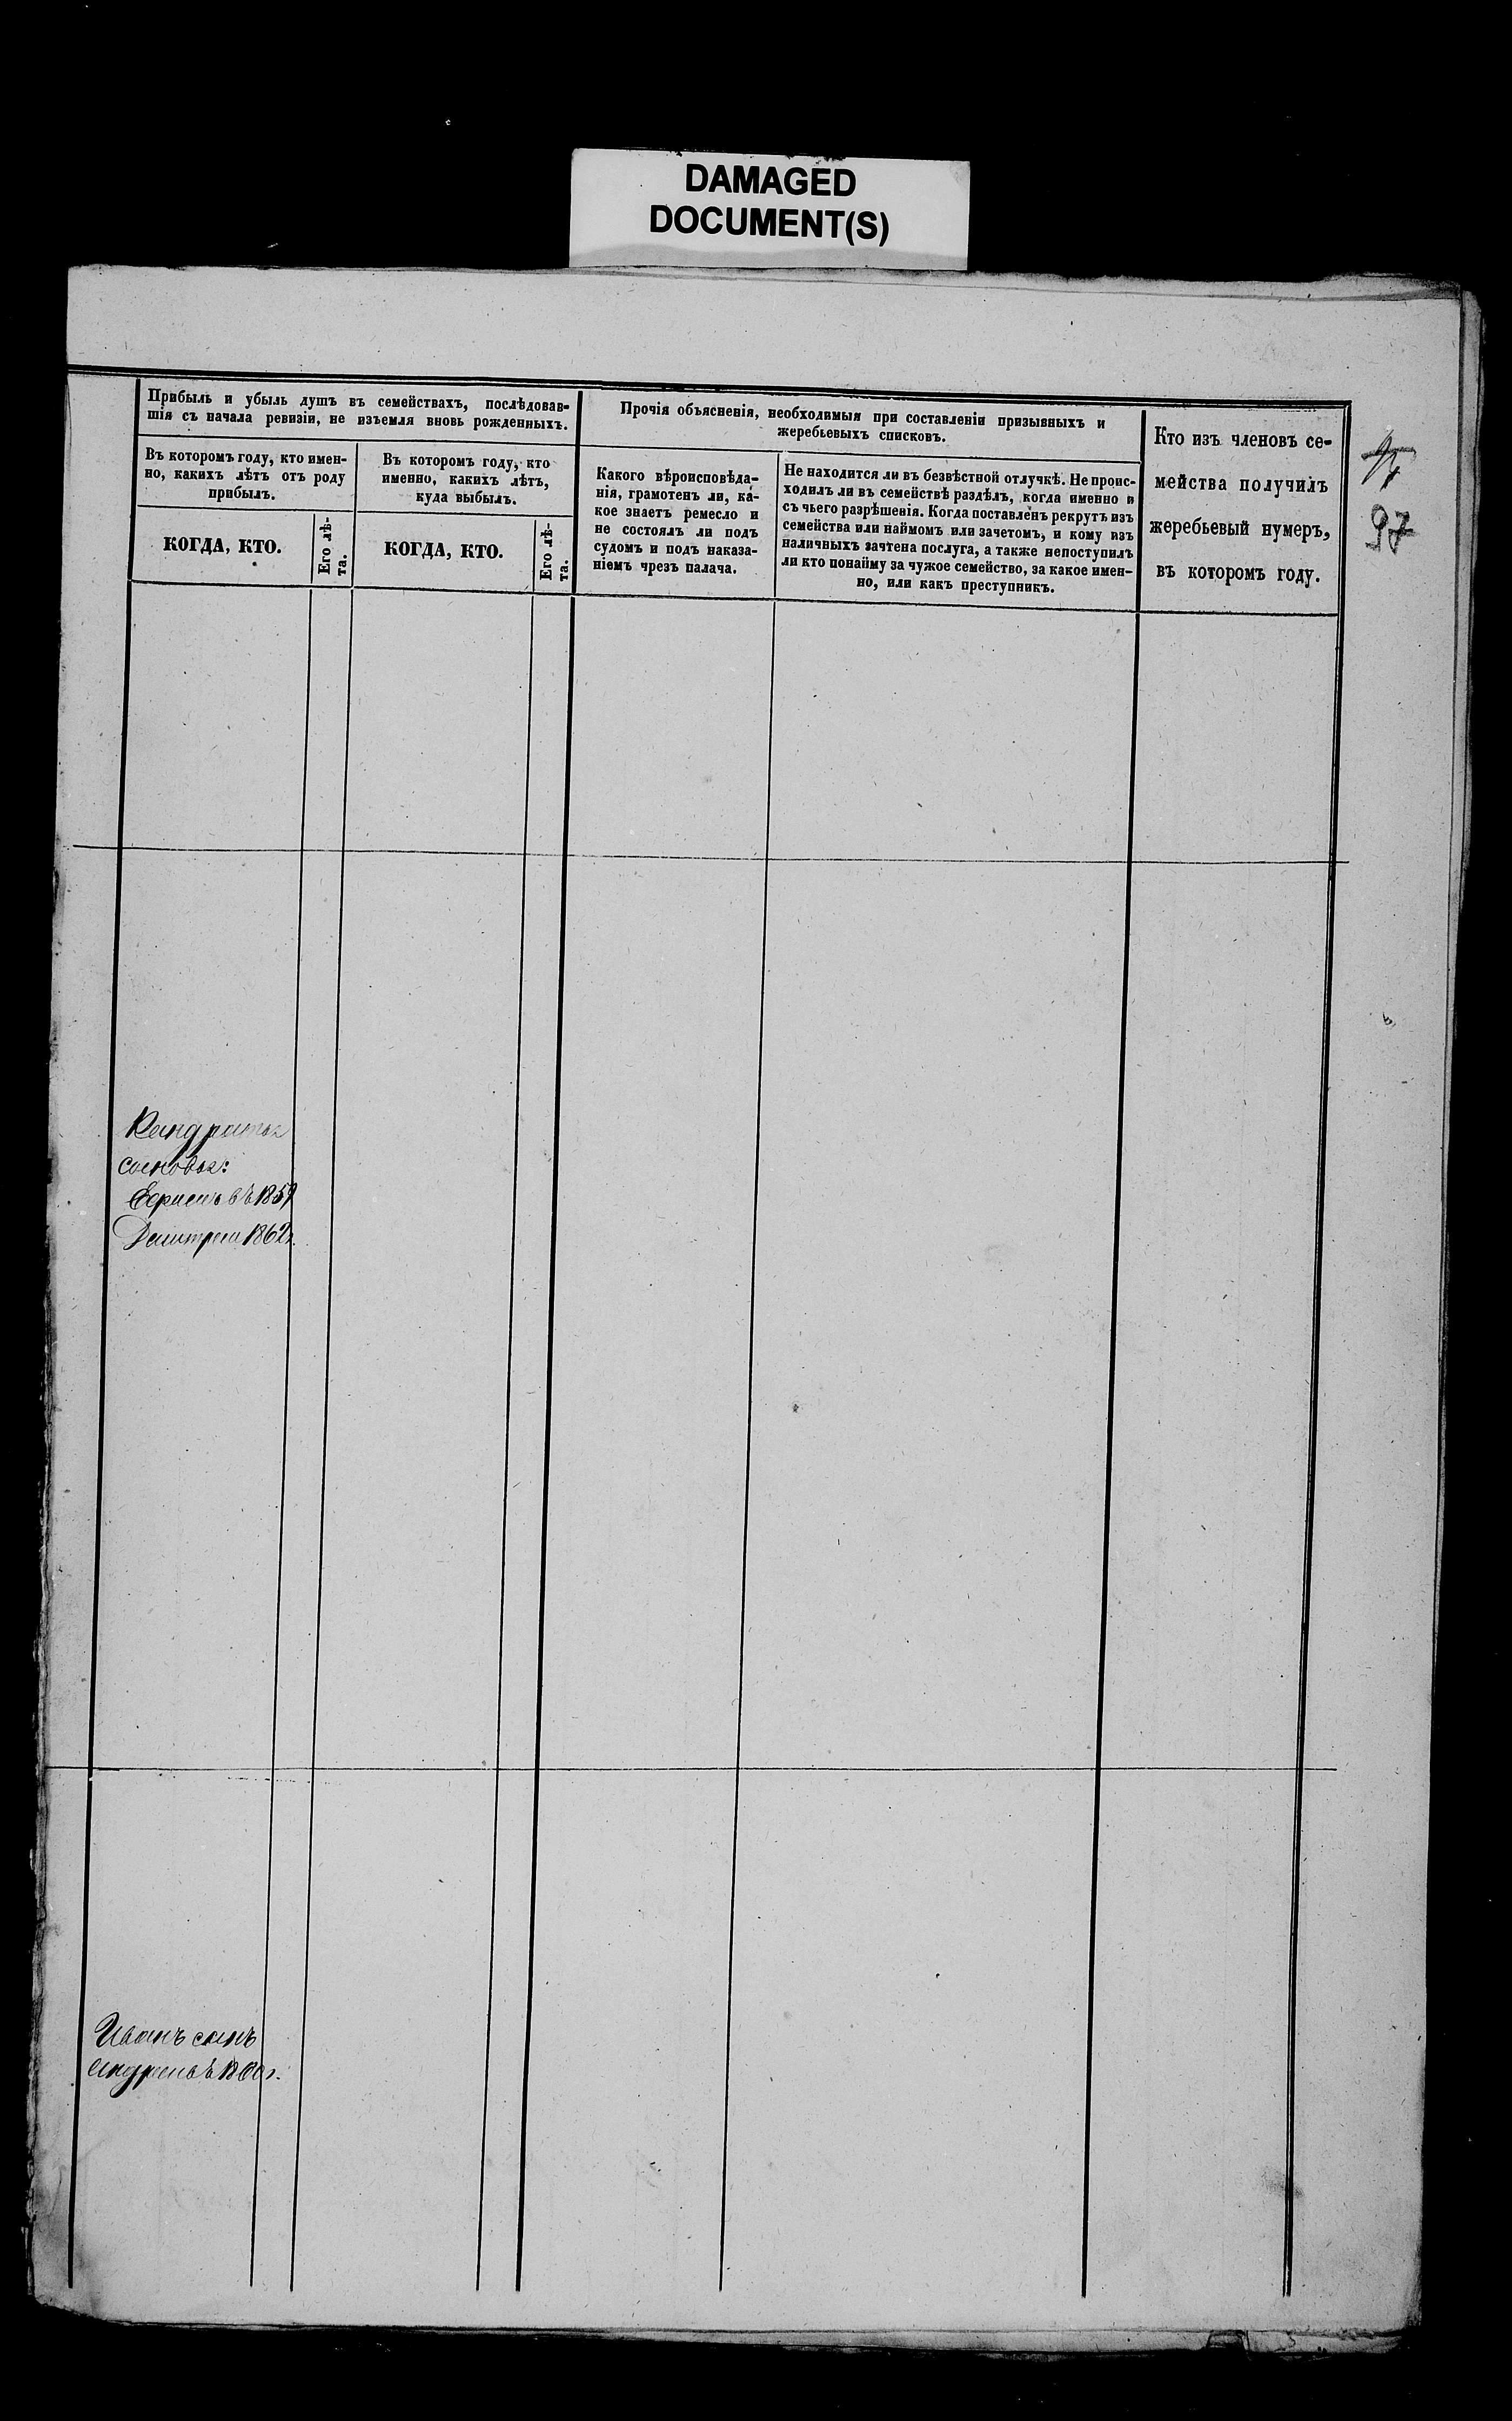 DAMAGED
DOCUMENT(S)
Прибыль и убыль душъ въ семействахъ, послѣдовав-
шія съ начала ревизіи, не изъемля вновь рожденныхъ.
Въ которомъ году, кто имен-
но, какихъ лѣтъ отъ роду
прибылъ.
КОГДА, КТО.
Его лѣ-
та.
Въ которомъ году, кто
именно, какихъ лѣтъ,
куда выбылъ.
КОГДА, КТО.
Его лѣ-
та.
Прочія объясненія, необходимыя при составленіи призывныхъ и
жеребьевыхъ списковъ.
Какого вѣроисповѣда-
нія, грамотенъ ли, ка-
кое знаетъ ремесло и
не состоялъ ли подъ
судомъ и подъ наказа-
ніемъ чрезъ палача.
Не находится ли въ безвѣстной отлучкѣ. Не проис-
ходилъ ли въ семействѣ раздѣлъ, когда именно и
съ чьего разрѣшенія. Когда поставленъ рекрутъ изъ
семейства или наймомъ или зачетомъ, и кому изъ
наличныхъ зачтена послуга, а также непоступилъ
ли кто понайму за чужое семейство, за какое имен-
но, или какъ преступникъ.
Кто изъ членовъ се-
мейства получилъ
жеребьевый нумеръ,
въ которомъ году.
97
Кандратья
сыновья:
въ 1859
1862г.
Иванъ сынъ